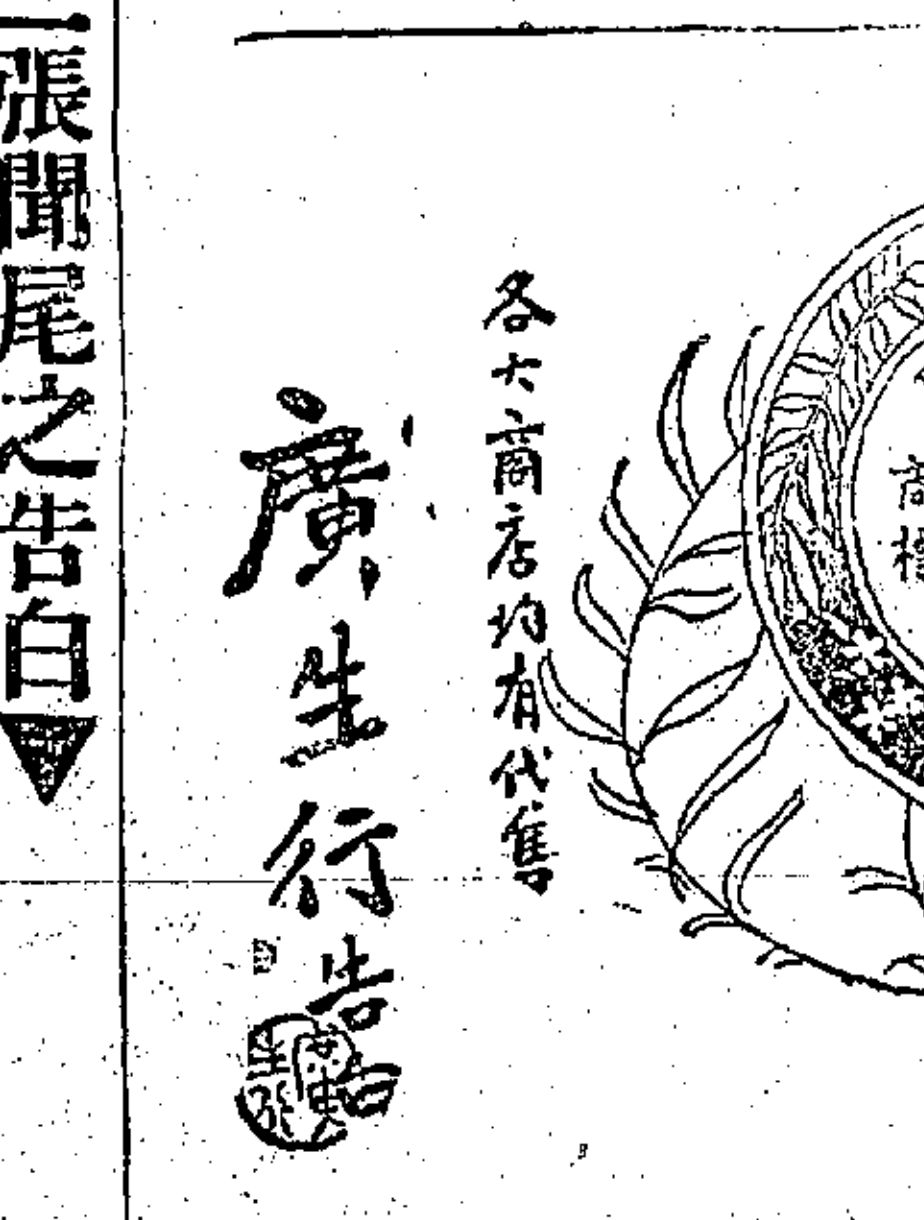 商標
各大商店均有代售
廣生行告白
張聞尾之告白